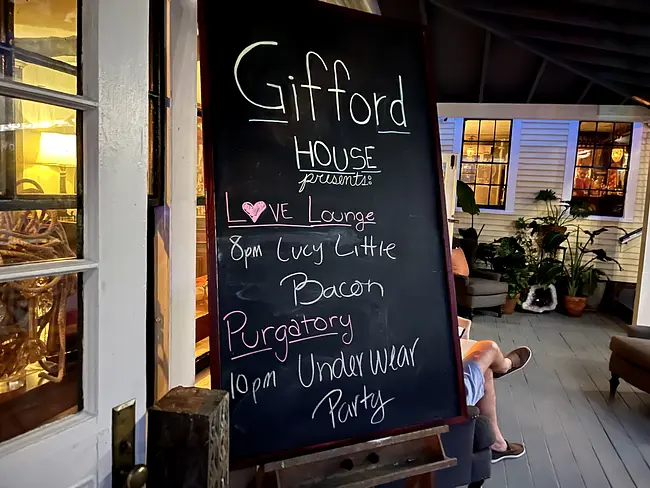 Gifford
HOUSE
presents:
LOVE Lounge
8pm Lucy Little
Bacon
Purgatory
10pm UnderWear
Party